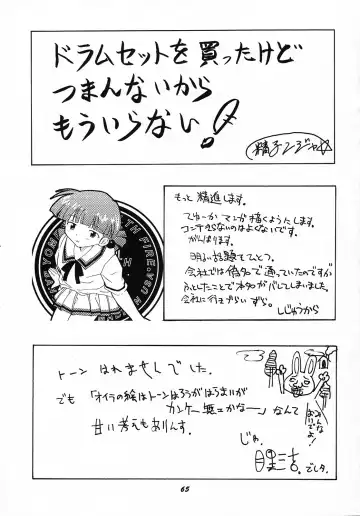 ドラムセットを買ったけど
つまんないから
もういらない!
精子ンジャ
もっと精進します。
てゆーかマンガ描くようにします。
コンテ切らないのはよくないです。
がんばります。
明るい話題でひとつ。
会社では偽名で通していたのですが
ふとしたことで本名がバレてしまいました。
会社に行きづらいずら。
しじゅうから
トーンはれませんでした。
でも「オイラの絵はトーンはろうがはるまいが
カンケー無ェかなー」なんて
甘い考えもありんす。
じゃ.
でした
みんな
おいでよ!
65